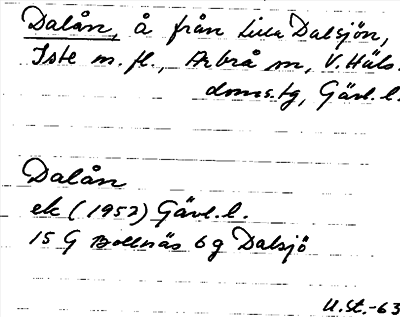 Dalån, å från Lilla Dalsjön,
Iste m.fl., Arbrå sn, V. Häls.
doms.tg, Gävl. l.
Dalån
ek (1952) Gävl. l.
15 G Bollnäs 6 g Dalsjö
U.St.-63